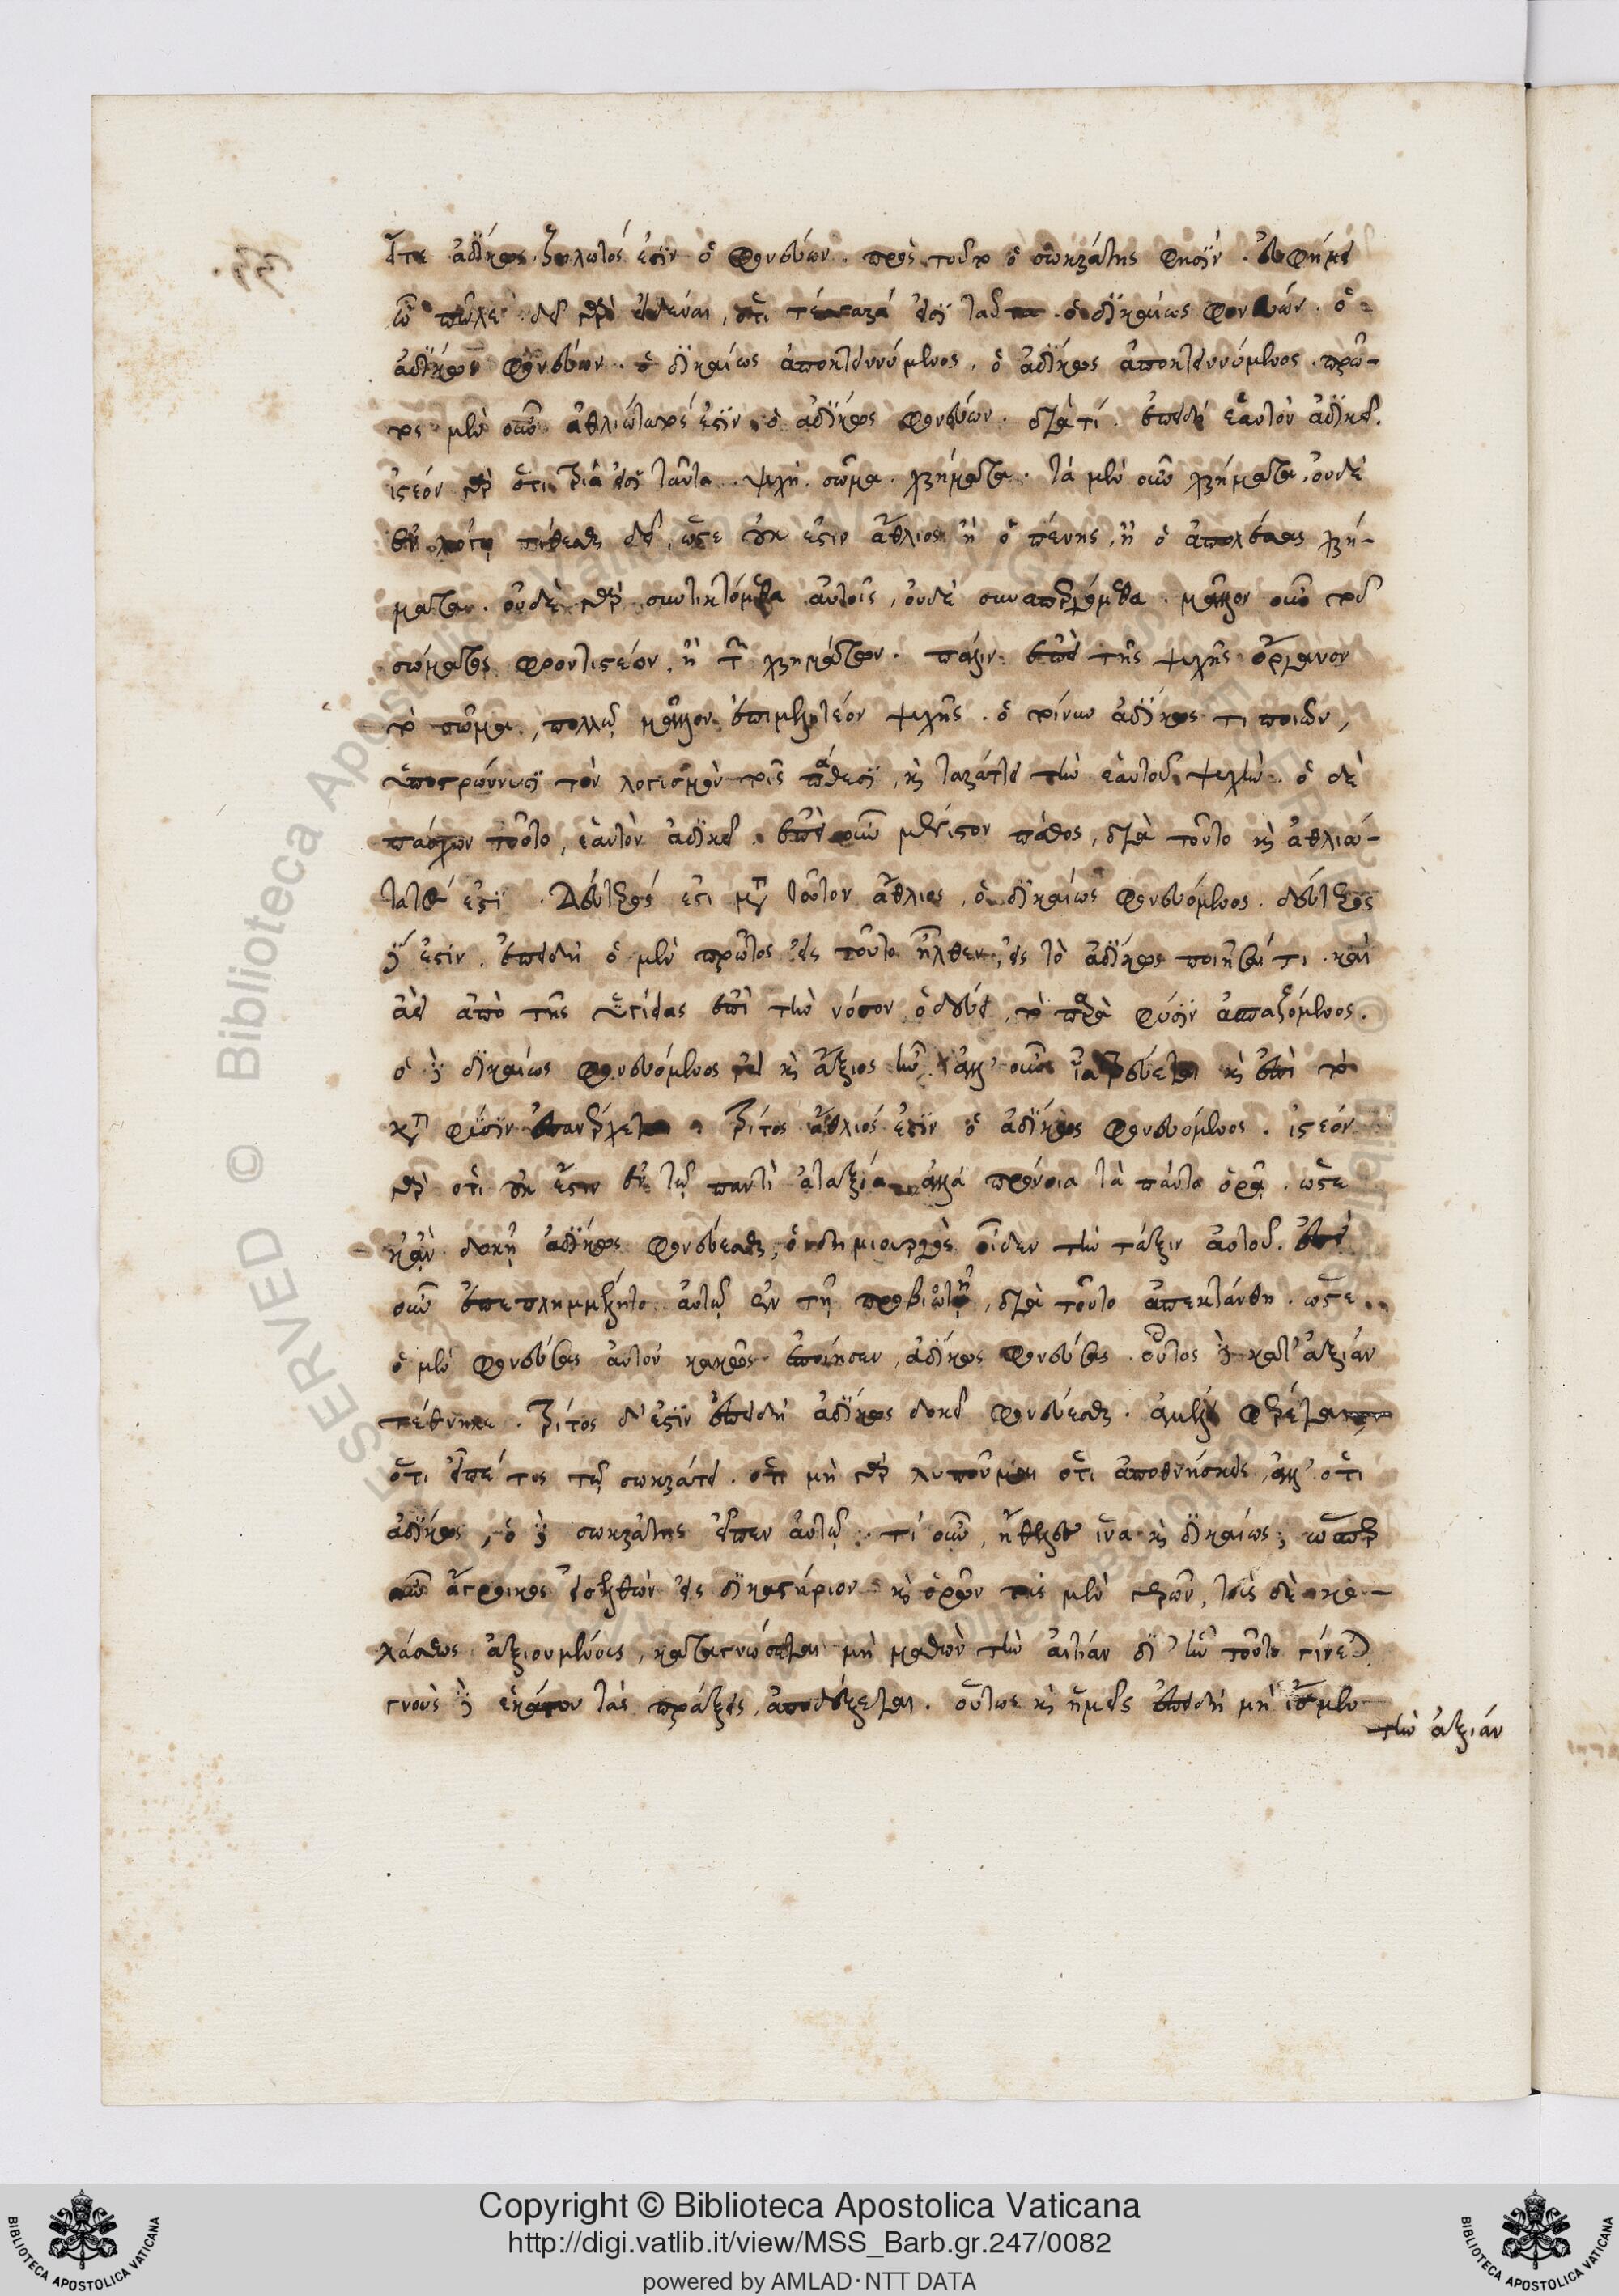 εἴτε ἀδίκως, ζηλωτός ἐστιν ὁ φονεύων. πρὸς τοῦτο ὁ σωκράτης φησίν. εὐφήμει
ὦ πῶλε. δεῖ γὰρ εἰδέναι, ὅτι τέσσαρά εἰσι ταῦτα. ὁ δικαίως φονεύων. ὁ
ἀδίκως φονεύων. ὁ δικαίως ἀποκτεννύμενος. ὁ ἀδίκως ἀποκτεννύμενος. πρῶ-
τος μὲν οὖν ἀθλιώτατός ἐστιν ὁ ἀδίκως φονεύων. διὰ τί. ἐπειδὴ ἑαυτὸν ἀδικεῖ.
ἰστέον γὰρ ὅτι τρία εἰσὶ ταῦτα. ψυχὴ. σῶμα. χρήματα. τὰ μὲν οὖν χρήματα, οὐδὲ
ἐν λόγῳ τίθεσθαι δεῖ, ὥστε οὐκ ἔστιν ἄθλιος ἢ ὁ πένης, ἢ ὁ ἀπολέσας χρή-
ματα. οὐδὲ γὰρ συντικτόμεθα αὐτοῖς, οὐδὲ συναπερχόμεθα. μᾶλλον οὖν τοῦ
σώματος φροντιστέον, ἢ τῶν χρημάτων. πάλιν ἐπεὶ τῆς ψυχῆς ὄργανον
τὸ σῶμα, πολλῷ μᾶλλον ἐπιμελητέον ψυχῆς. ὁ τοίνυν ἀδίκως τι ποιῶν,
ὑποστρώννυσι τὸν λογισμὸν τοῖς πάθεσι, καὶ ταράττει τὴν ἑαυτοῦ ψυχὴν. ὁ δὲ
πάσχων τοῦτο, ἑαυτὸν ἀδικεῖ. ἐπεὶ οὖν μέγιστον πάθος, διὰ τοῦτο καὶ ἀθλιώ-
τατός ἐστι. Δεύτερός ἐστι μετὰ τοῦτον ἄθλιος, ὁ δικαίως φονευόμενος. δεύτερος
δέ ἐστιν. ἐπειδὴ ὁ μὲν πρῶτος εἰς τοῦτο ἦλθεν, εἰς τὸ ἀδίκως ποιῆσαί τι. καὶ
ἀεὶ ἀπὸ τῆς ὑγείας ἐπὶ τὴν νόσον ὁδεύει, τὸ παρὰ φύσιν ἀσπαζόμενος.
ὁ δὲ δικαίως φονευόμενος εἰ καὶ ἄξιος ἦν ἀλλ' οὖν ἰατρεύεται καὶ ἐπὶ τὸ
κατὰ φύσιν ἐπανέρχεται. Τρίτος ἄθλιός ἐστιν ὁ ἀδίκως φονευόμενος. ἰστέον
γὰρ ὅτι οὐκ ἔστιν ἐν τῷ παντὶ ἀταξία ἀλλὰ πρόνοια τὰ πάντα ὁρᾷ. ὥστε
κἂν δοκῇ ἀδίκως φονεύεσθαι, ὁ δημιουργὸς οἶδεν τὴν τάξιν αὐτοῦ. ἐπεὶ
οὖν ἐπεπλημμέλητο αὐτῷ ἐν τῇ προβιοτῇ, διὰ τοῦτο ἀπεκτάνθη. ὥστε
ὁ μὲν φονεύσας αὐτὸν κακῶς ἐποίησεν, ἀδίκως φονεύσας. οὗτος δὲ κατ' ἀξίαν
τέθνηκε. Τρίτος δ' ἐστὶν ἐπειδὴ ἀδίκως δοκεῖ φονεύεσθαι. ἀμέλει φέρεται
ὅτι εἶπέ τις τῷ σωκράτει. ὅτι μὴ γὰρ λυποῦμαι ὅτι ἀποθνήσκεις, ἀλλ' ὅτι
ἀδίκως, ὁ δὲ σωκράτης εἶπεν αὐτῷ. τί οὖν, ἤθελες ἵνα καὶ δικαίως; ὥσπερ
οὖν ἄγροικος εἰσελθὼν εἰς δικαστήριον καὶ ὁρῶν τοὺς μὲν γερῶν, τοὺς δὲ κο-
λάσεως ἀξιουμένους, καταγνώσεται μὴ μαθὼν τὴν αἰτίαν δι' ἣν τοῦτο γίνεται
γνοὺς δὲ ἑκάστου τὰς πράξεις, ἀποδέχεται. οὕτως καὶ ἡμεῖς ἐπειδὴ μὴ ἴσμεν
τὴν ἀξίαν
Copyright © Biblioteca Apostolica Vaticana
http://digi.vatlib.it/view/MSS_Barb.gr.247/0082
powered by AMLAD·NTT DATA